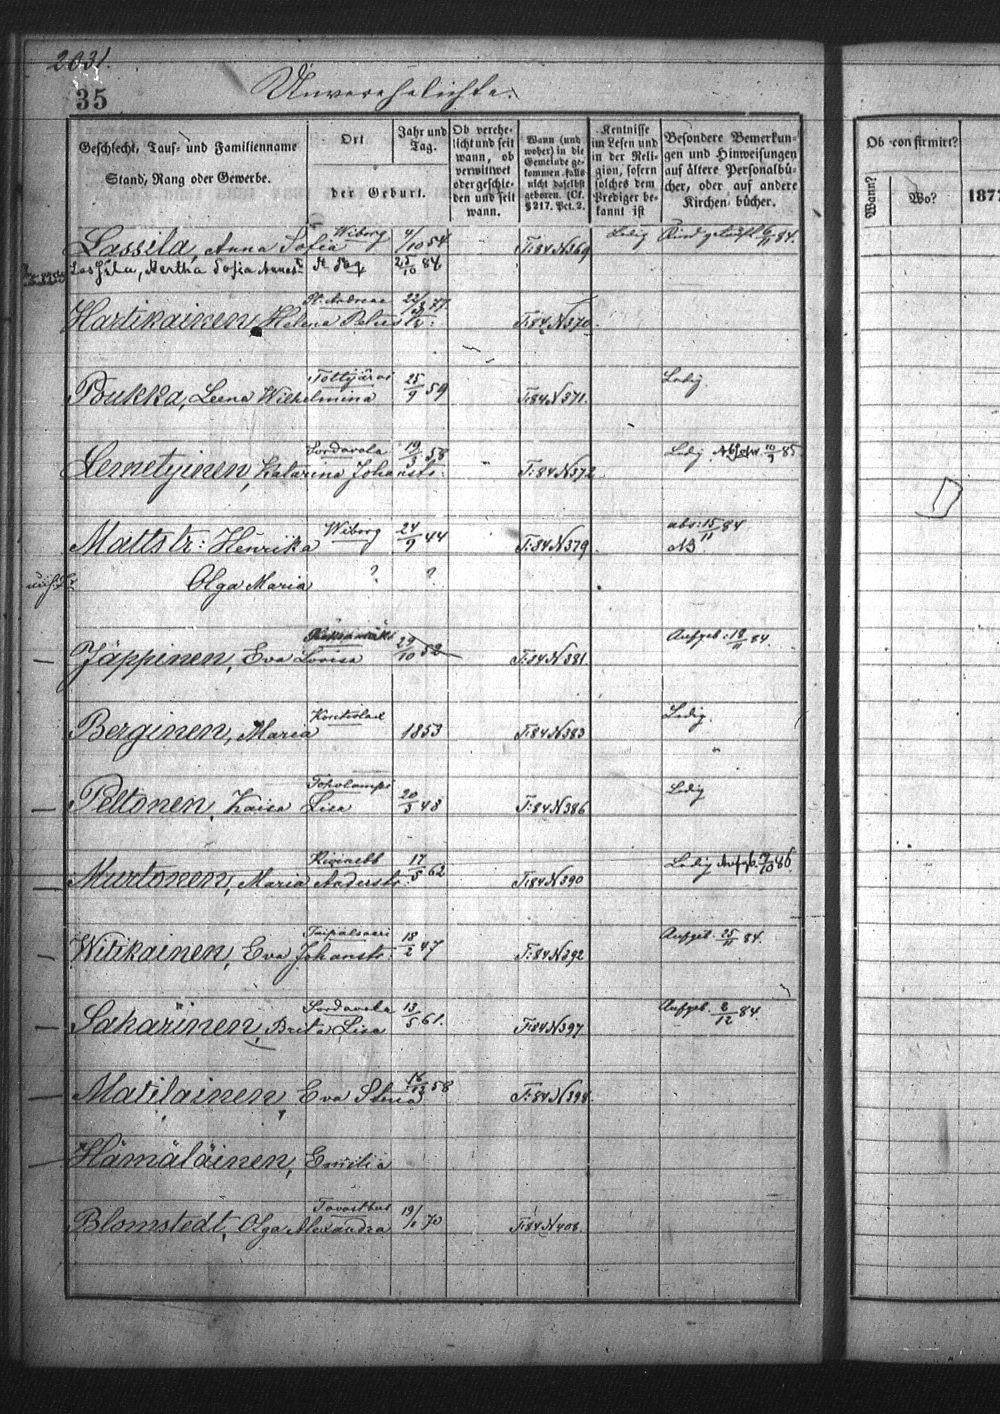 2031.
35
Unverehelichte.
Geschlecht, Tauf- und Familienname
Stand, Rang oder Gewerbe.
Ort
der Geburt.
Jahr und
Tag.
Ob verehe-
licht und seit
wann, ob
verwittwet
oder geschie-
den und seit
wann.
Wann (und
woher) in die
Gemeinde ge-
kommen, falls
nicht daselbst
geboren. (Cf.
§ 217. Pct. 2.
Kentnisse
im Lesen und
in der Reli-
gion, sofern
solches dem
Prediger be-
kannt ist
Besondere Bemerkun-
gen und Hinweisungen
auf ältere Personalbü-
cher, oder auf andere
Kirchen bücher.
Ob confirmirt?
Wann?
Wo?
187
Lassila, Anna Sofia Wiborg 4/10 54 T:84 N369 Ledig Kind getauft 84.
Lassila, Hertha Sofia St. Pbg 25/10 84
Hartikainen, Helena Petersts: St. Andreae 22/3 77 T:84 N370.
Pukka, Leena Wilhelmina 25/9 59 T:84 N371. Ledig.
Lemetyinen, Katarina Johansts. Sordavala 19/3 58 T:84 N372 Ledig 85
Mattstr: Henrika Wiborg 24/9 44 T:84 N379 abs: 15/11 84
NB
Olga Maria ? ?
Jäppinen, Eva Lovisa 29/10 52 T:84 N381. Aufgeb: 18/11 84.
Berginen, Maria 1853 T:84 N383 Ledig.
Peltonen, Kaisa Lisa Toholampi 20/5 48 T:84 N386 Ledig
Murtonen, Maria Andersts: Kivinebb 17/5 62 T:84 N390 Ledig Aufgb. 86.
Witikainen, Eva Johansts: Taipalsaari 18/2 47 T:84 N392 Aufgeb. 25/11 84.
Sakarinen, Brita Lisa Sordavala 13/5 61. T:84 N397 Aufgeb. 8/12 84.
Matilainen, Eva Stina 58 T:84 N398.
Hämäläinen, Emilia
Blomstedt, Olga Alexandra Tavasthus 19/1 70 T:84 N408.